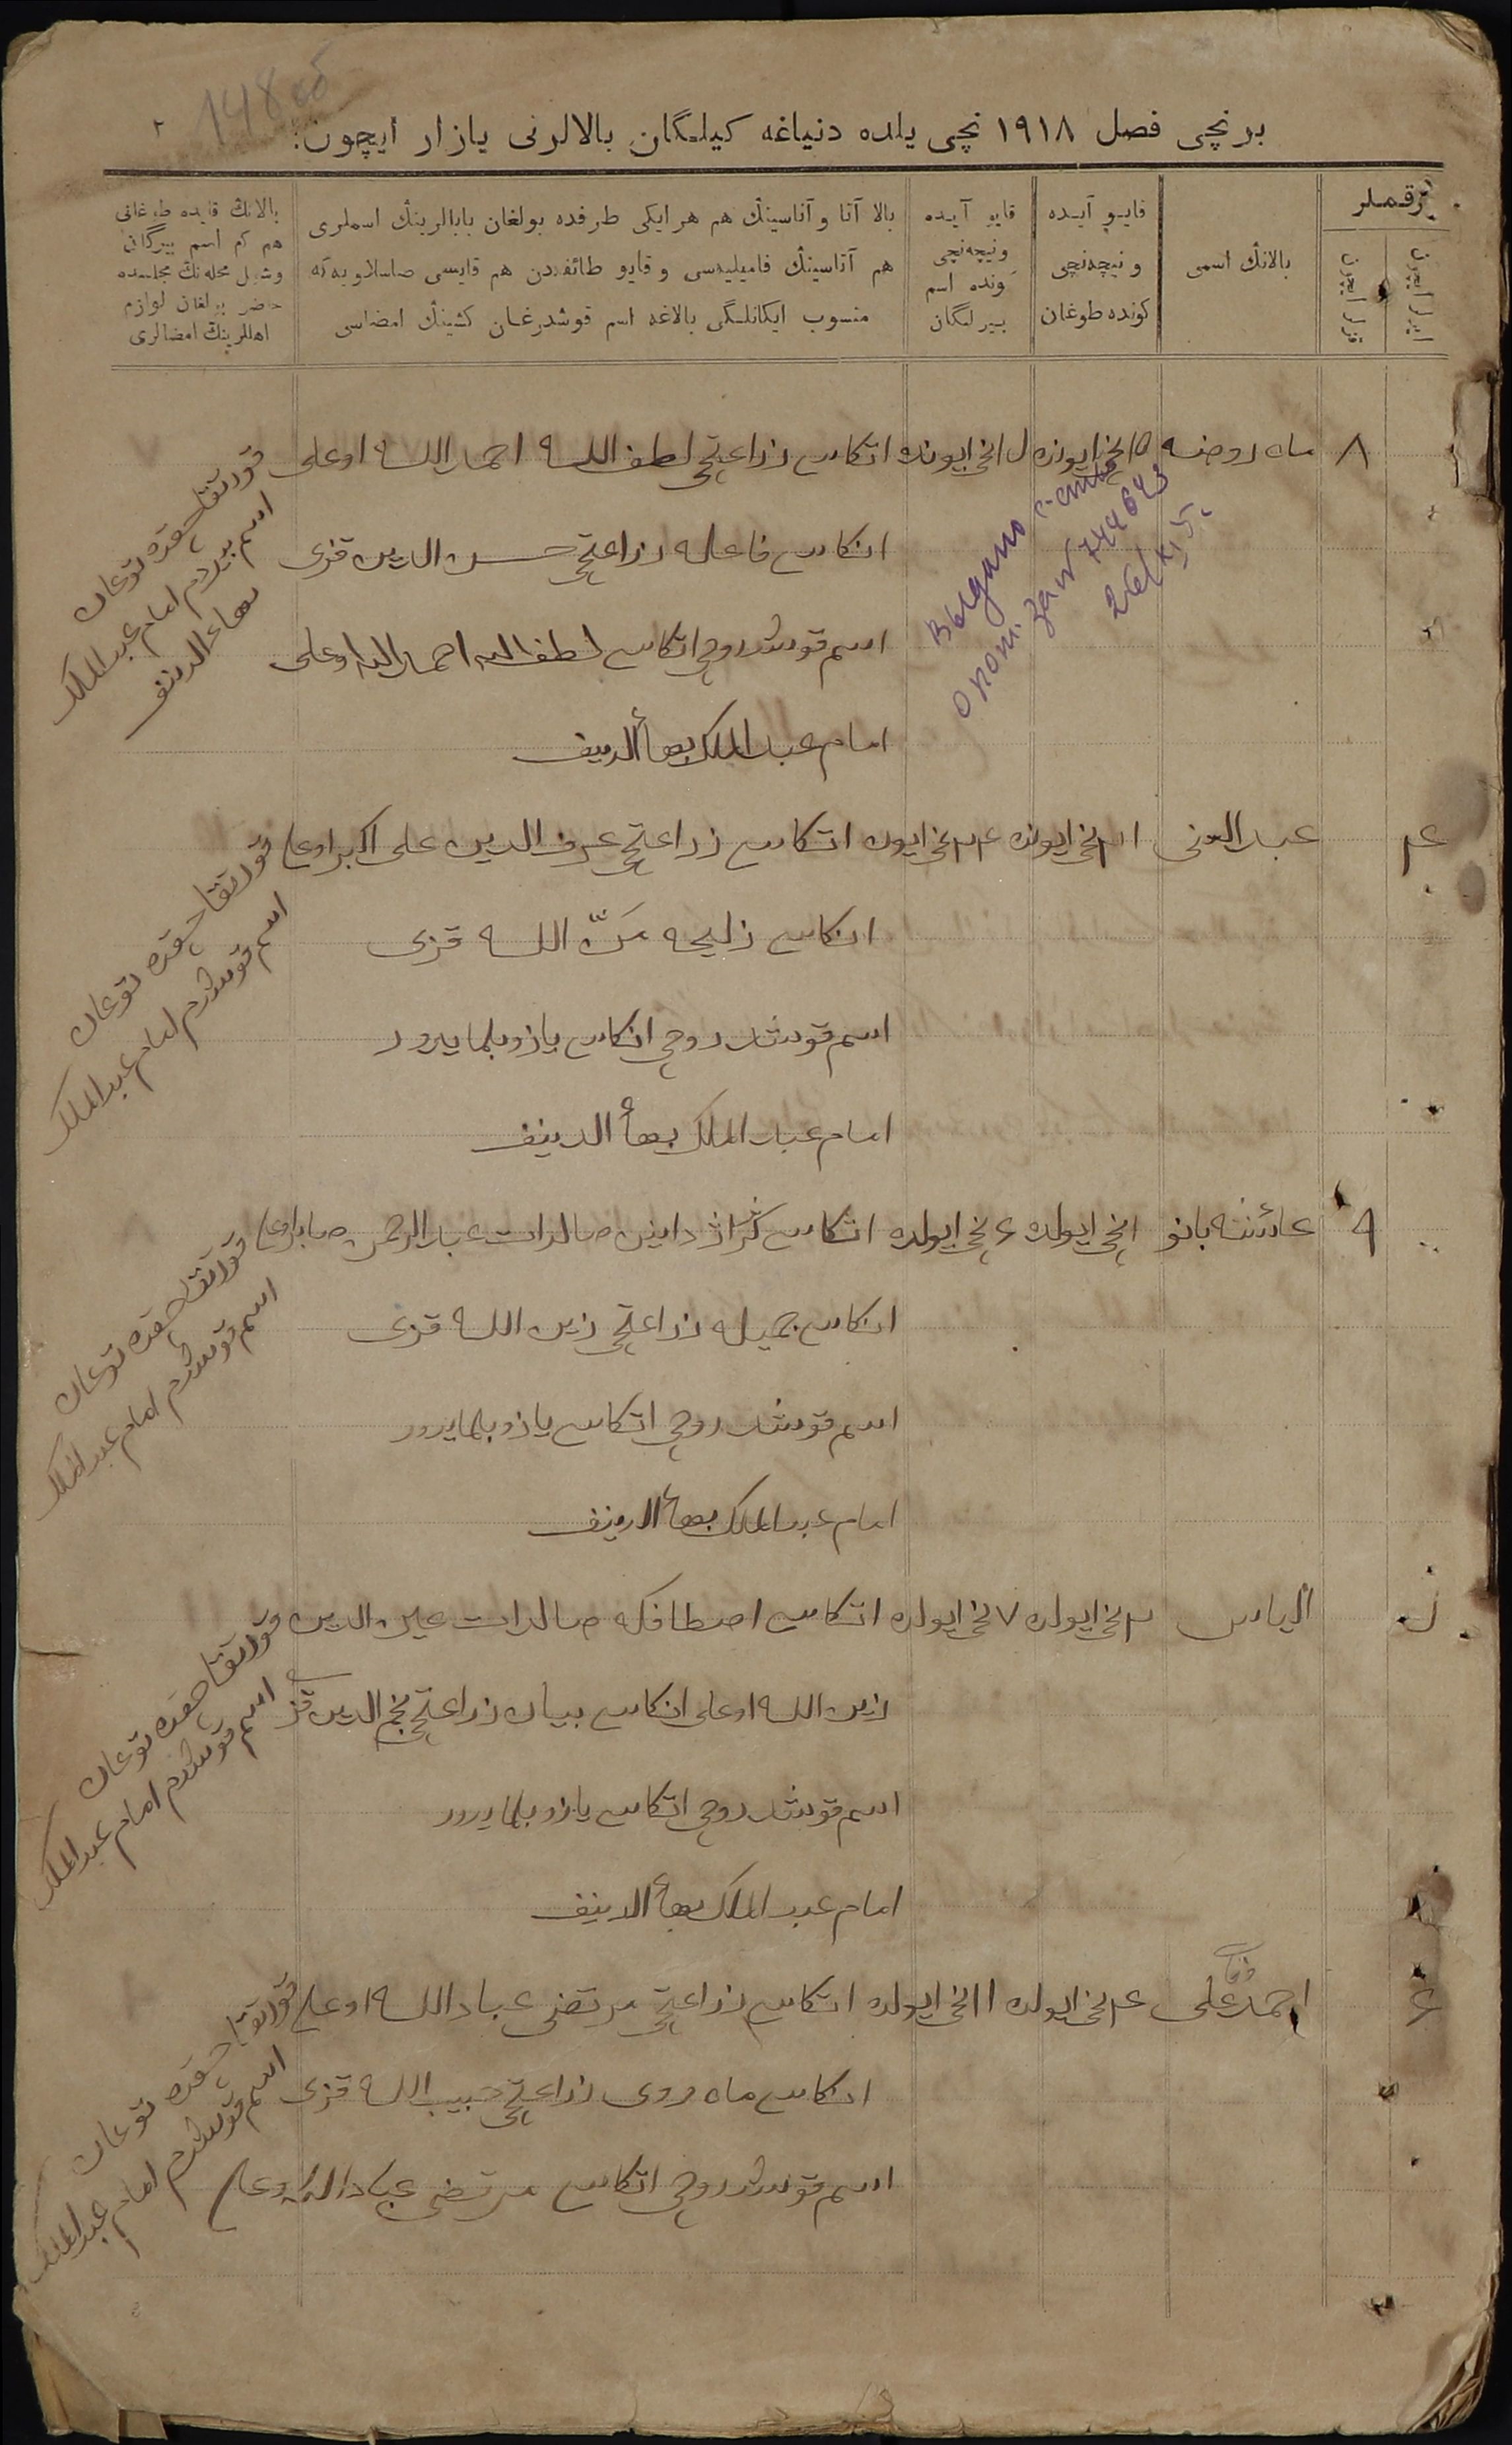 148 об
٢
برنچی فصل ١٩١٨ نچی یلده دنیاغه کیلگان بالالرنی یازار ایچون:
رقملر
ایرلر ایچون
قزلر ایچون
بالانڭ اسمی
قایو آیده
و نیچه‌نچی
کونده طوغان
قایو آیده
و نیچه‌نچی
کونده اسم
بیرلگان
بالا آتا و آناسینڭ هم هر ایکی طرفده بولغان بابالرینڭ اسملری
هم آتاسینڭ فامیلیه‌سی و قایو طائفه‌دن هم قایسی صاسلاویه‌گه
منسوب ایکانلگی بالاغه اسم قوشدرغان کشینڭ امضاسی
بالانڭ قایده طوغانی
هم کم اسم بیرگانی
وشول محله‌نڭ مجلسده
حاضر بولغان لوازم
اهللرینڭ امضالری
٨ ماه روضه ١٥ نچی ایونده نچی ایونده اتکاسی زراعتچی لطف الله احمد الله اوغلی
انکاسی فاعله زراعتچی حسن الدین قزی
اسم قوشدروچی اتکاسی لطف الله احمد الله اوغلی
امام عبد الملک بهأ الدینف
قورتقا حقده توغان
اسم بیردم امام عبد الملک
بهاء الدینف
Выдано
о пом. за № 744643
٤ عبد الغنی ٢١ نچی ایونده ٢٤ نچی ایونده اتکاسی زراعتچی عرف الدین علی اکبر اوغلی
انکاسی زلیحه منّ الله قزی
اسم قوشدروچی انکاسی یازو بلمایدرور
امام عبد الملک بهأ الدینف
قورتقا حقده توغان
اسم قوشدم امام عبد الملک
٩ عائشه بانو ١ نچی ایولده ٤ نچی ایولده اتکاسی صالدات عبد الرحمن صابر اوغلی
انکاسی جمیله زراعتچی زین الله قزی
اسم قوشدروچی اتکاسی یازو بلمایدرور
امام عبد الملک بهأ الدینف
قورتقا حقده توغان
اسم قوشدم امام عبد الملک
٥ الیاس ٣ نچی ایولده ٧ نچی ایولده اتکاسی اصطافکه صالدات عین الدین
زین الله اوغلی انکاسی بیان زراعتچی نجم الدین قزی
اسم قوشدروچی اتکاسی یازو بلمایدرور
امام عبد الملک بهأ الدینف
قورتقا حقده توغان
اسم قوشدم امام عبد الملک
٦ احمد علی ٤ نچی ایولده ١١ نچی ایولده اتکاسی زراعتچی مرتضی عباد الله اوغلی
انکاسی ماه روی زراعتچی حبیب الله قزی
اسم قوشدروچی اتکاسی مرتضی عباد الله اوغلی
قورتقا حقده توغان
اسم قوشدم امام عبد الملک